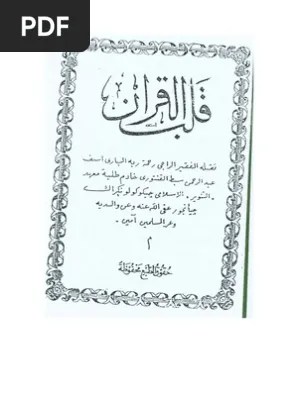 PDF
قلب القرآن
نقله الفقير الراجي رحمة ربه الباري اسف
عبد الرحمن سبط الفنتوري خادم طلبة معهد
التنوير الإسلامي چيكوكولو
چيانجور عفى الله عنه وعن والديه
وعن المسلمين آمين
١
حقوق الطبع محفوظة